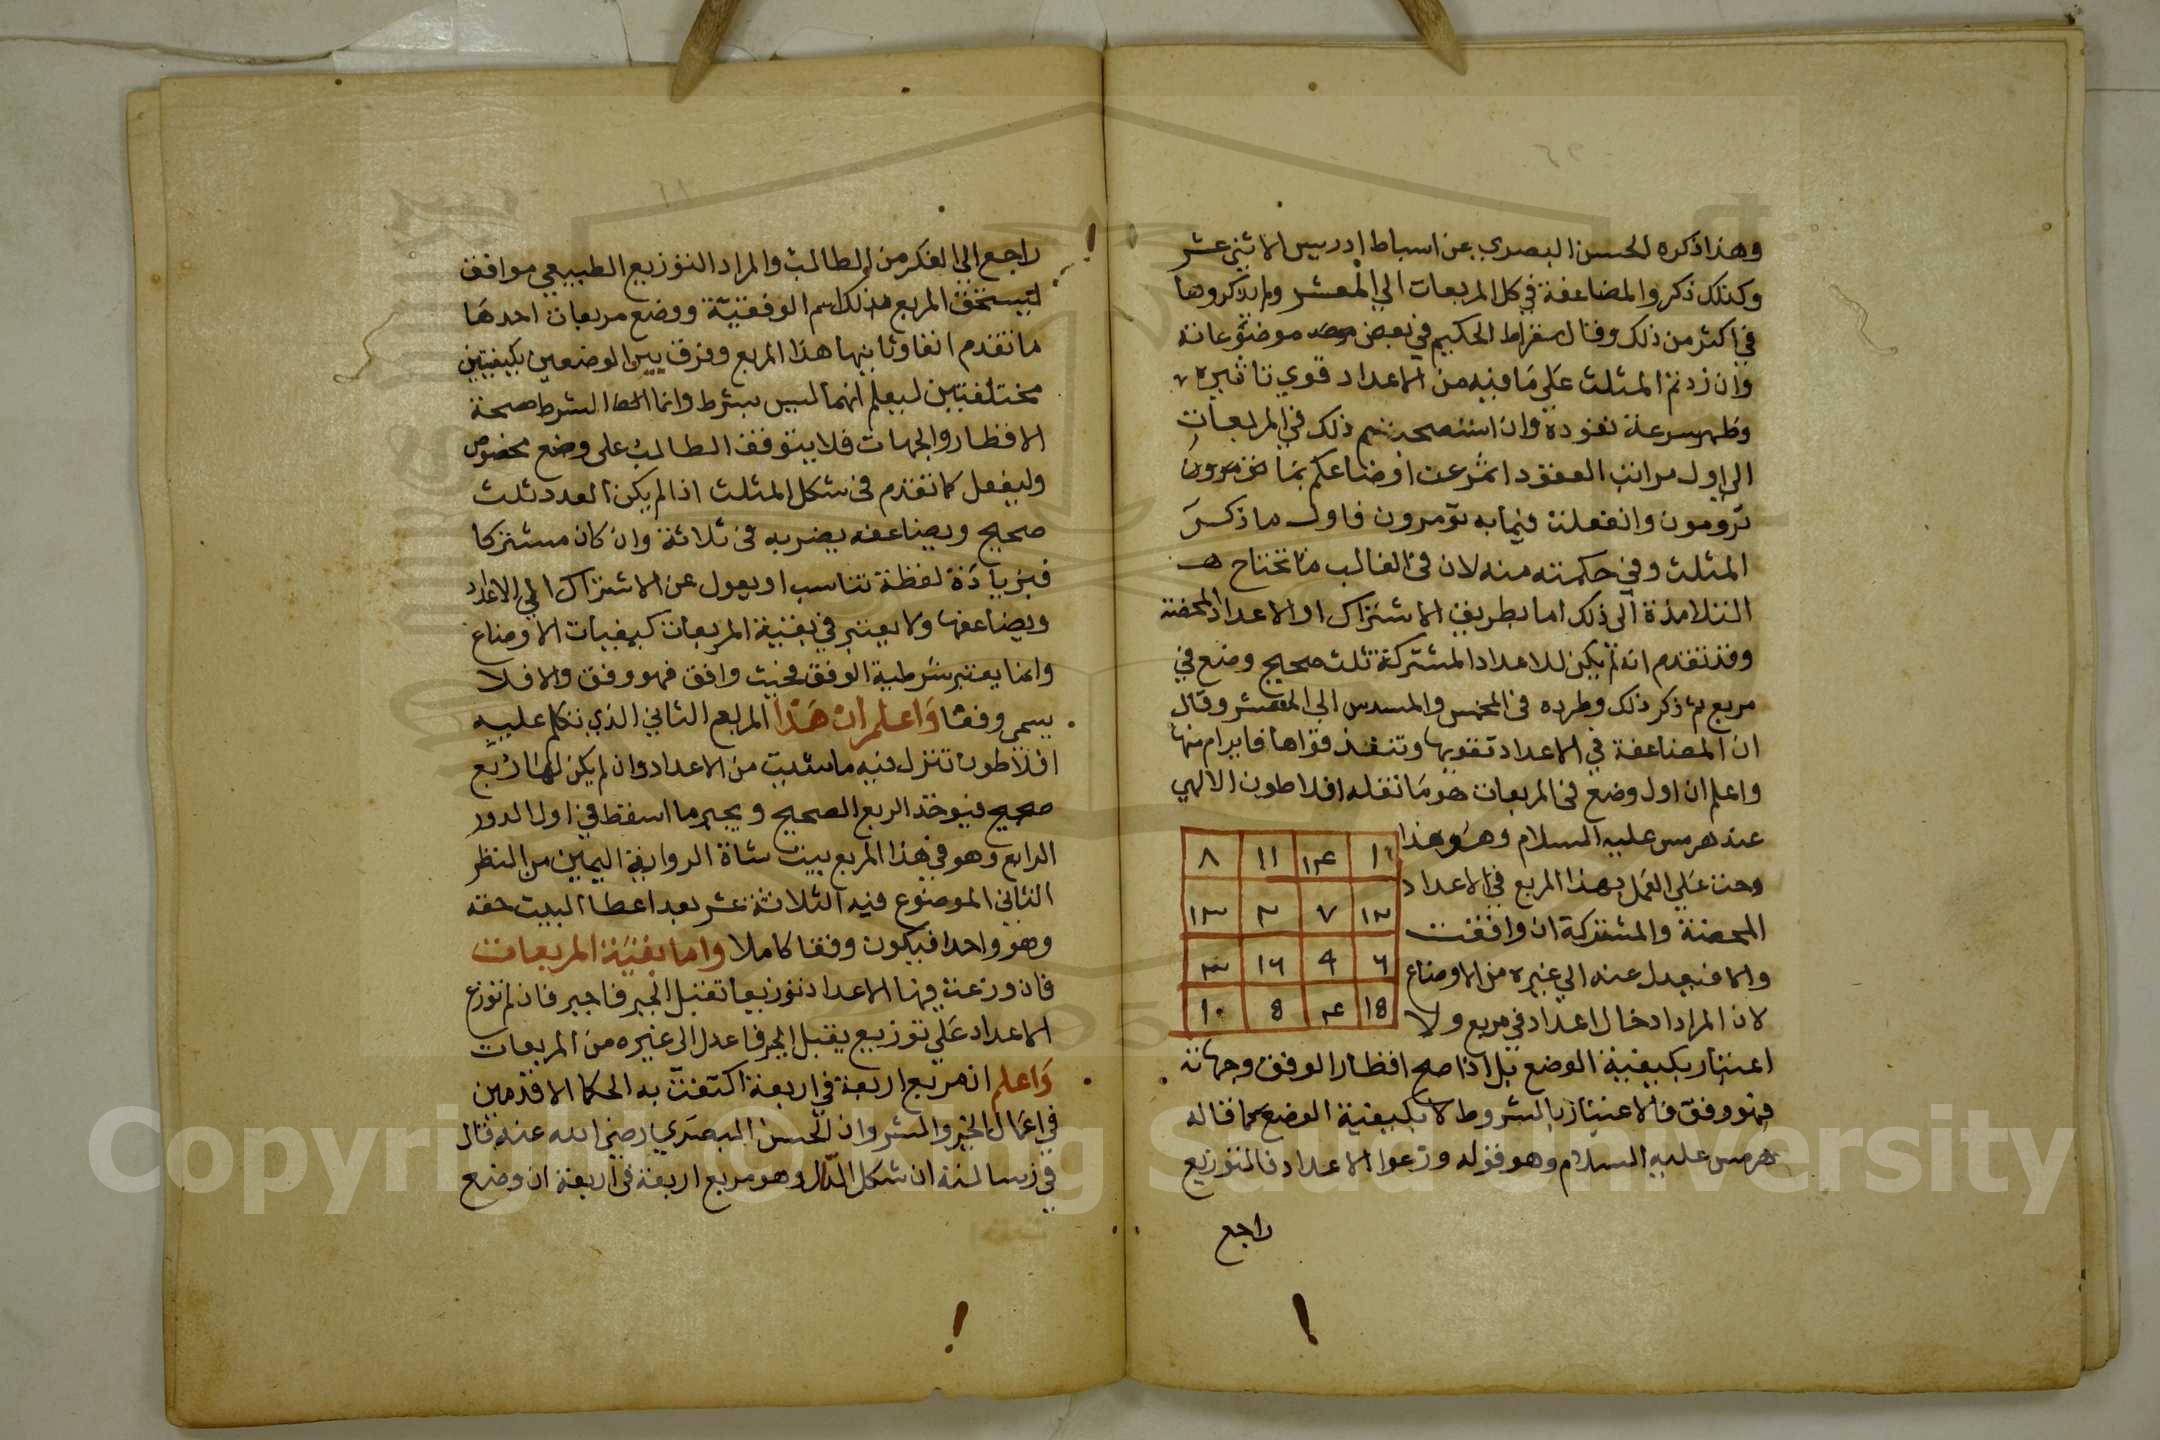 وهذا ذكره الحسن البصري عن اسباط ادريس الاثني عشر
وكذلك ذكروا المضاعفة في كل المربعات الي المعشر ولم يذكروها
في اكثر من ذلك وقال سقراط الحكيم في بعض موضوعاته
وان زدتم المثلث علي ما فيه من الاعداد قوي تاثيره
وظهر سرعة نفوذه وان استصحبتم ذلك في المربعات
الي اول مراتب العقود اسرعت اوضاعكم بما
ترومون وانفعلت فيما به تومرون فاول ما ذكر
المثلث وفي حكمته منه لان في الغالب ما تحتاج
التلامذة الي ذلك اما بطريق الاشتراك او الاعداد المحضة
وقد تقدم انه لم يكن للاعداد المشتركة ثلث صحيح وضع في
مربع ثم ذكر ذلك وطرده في المخمس والمسدس الي المعشر وقال
ان المضاعفة في الاعداد تقويها وتنفذ قواها فايرام منها
واعلم ان اول وضع في المربعات هو ما نقله افلاطون الالهي
عند هرمس عليه السلام وهو هذا
وحث علي العمل بهذا المربع في الاعداد
المحضة والمشتركة ان وافقت
والا فيعدل عنه الي غيره من الاوضاع
لان المراد ادخال اعداد في مربع ولا
١ ١٤ ١١ ٨
١٢ ٧ ٢ ١٣
٦ ٩ ١٦ ٣
١٥ ٤ ٥ ١٠
اعتبار بكيفية الوضع بل اذا صح اقطار الوفق وجهاته
فهو وفق فالاعتبار بالشروط لا بكيفية الوضع كما قاله
هرمس عليه السلام وهو قوله وزعوا الاعداد فالتوزيع
راجع
راجع الي الفكر من الطالب والمراد التوزيع الطبيعي موافق
ليستحق المربع بذلك اسم الوفقية ووضع مربعات احدها
ما تقدم انفا وثانيها هذا المربع وفرق بين الوضعين بكيفيتين
مختلفتين ليعلم انهما ليس بشرط وانما الشرط صحة
الاقطار والجهات فلا يتوقف الطالب علي وضع مخصوص
وليفعل كما تقدم في شكل المثلث اذا لم يكن العدد ثلث
صحيح ويضاعفه بضربه في ثلاثة وان كان مشتركا
فبزيادة لفظة تناسب او يعول عن الاشتراك الي الاعداد
ويضاعفها ولا يعتبر في بقية المربعات كيفيات الاوضاع
وانما يعتبر شرطية الوفق فحيث وافق فهو وفق والا فلا
يسمى وفقا واعلم ان هذا المربع الثاني الذي تكلم عليه
افلاطون تنزل فيه ما شيت من الاعداد وان لم يكن لها ربع
صحيح فيوخذ الربع الصحيح ويجبر ما اسقط في اول الدور
الرابع وهو في هذا المربع بيت شاة الزواية اليمين من النظر
الثاني الموضوع فيه الثلاثة عشر بعد اعطا البيت حقه
وهو واحد فيكون وفقا كاملا واما بقية المربعات
فان وزعت فيها الاعداد توزيعا تقبل الجبر فاجبر فان لم توزع
الاعداد علي توزيع يقبل الجبر فاعدل الى غيره من المربعات
واعلم ان مربع اربعة في اربعة اكتفت به الحكما الاقدمين
في اعمال الخير والشر وان الحسن البصري رضي الله عنه قال
في رسالته ان شكل الدال وهو مربع اربعة في اربعة ان وضع
Copyright © King Saud University